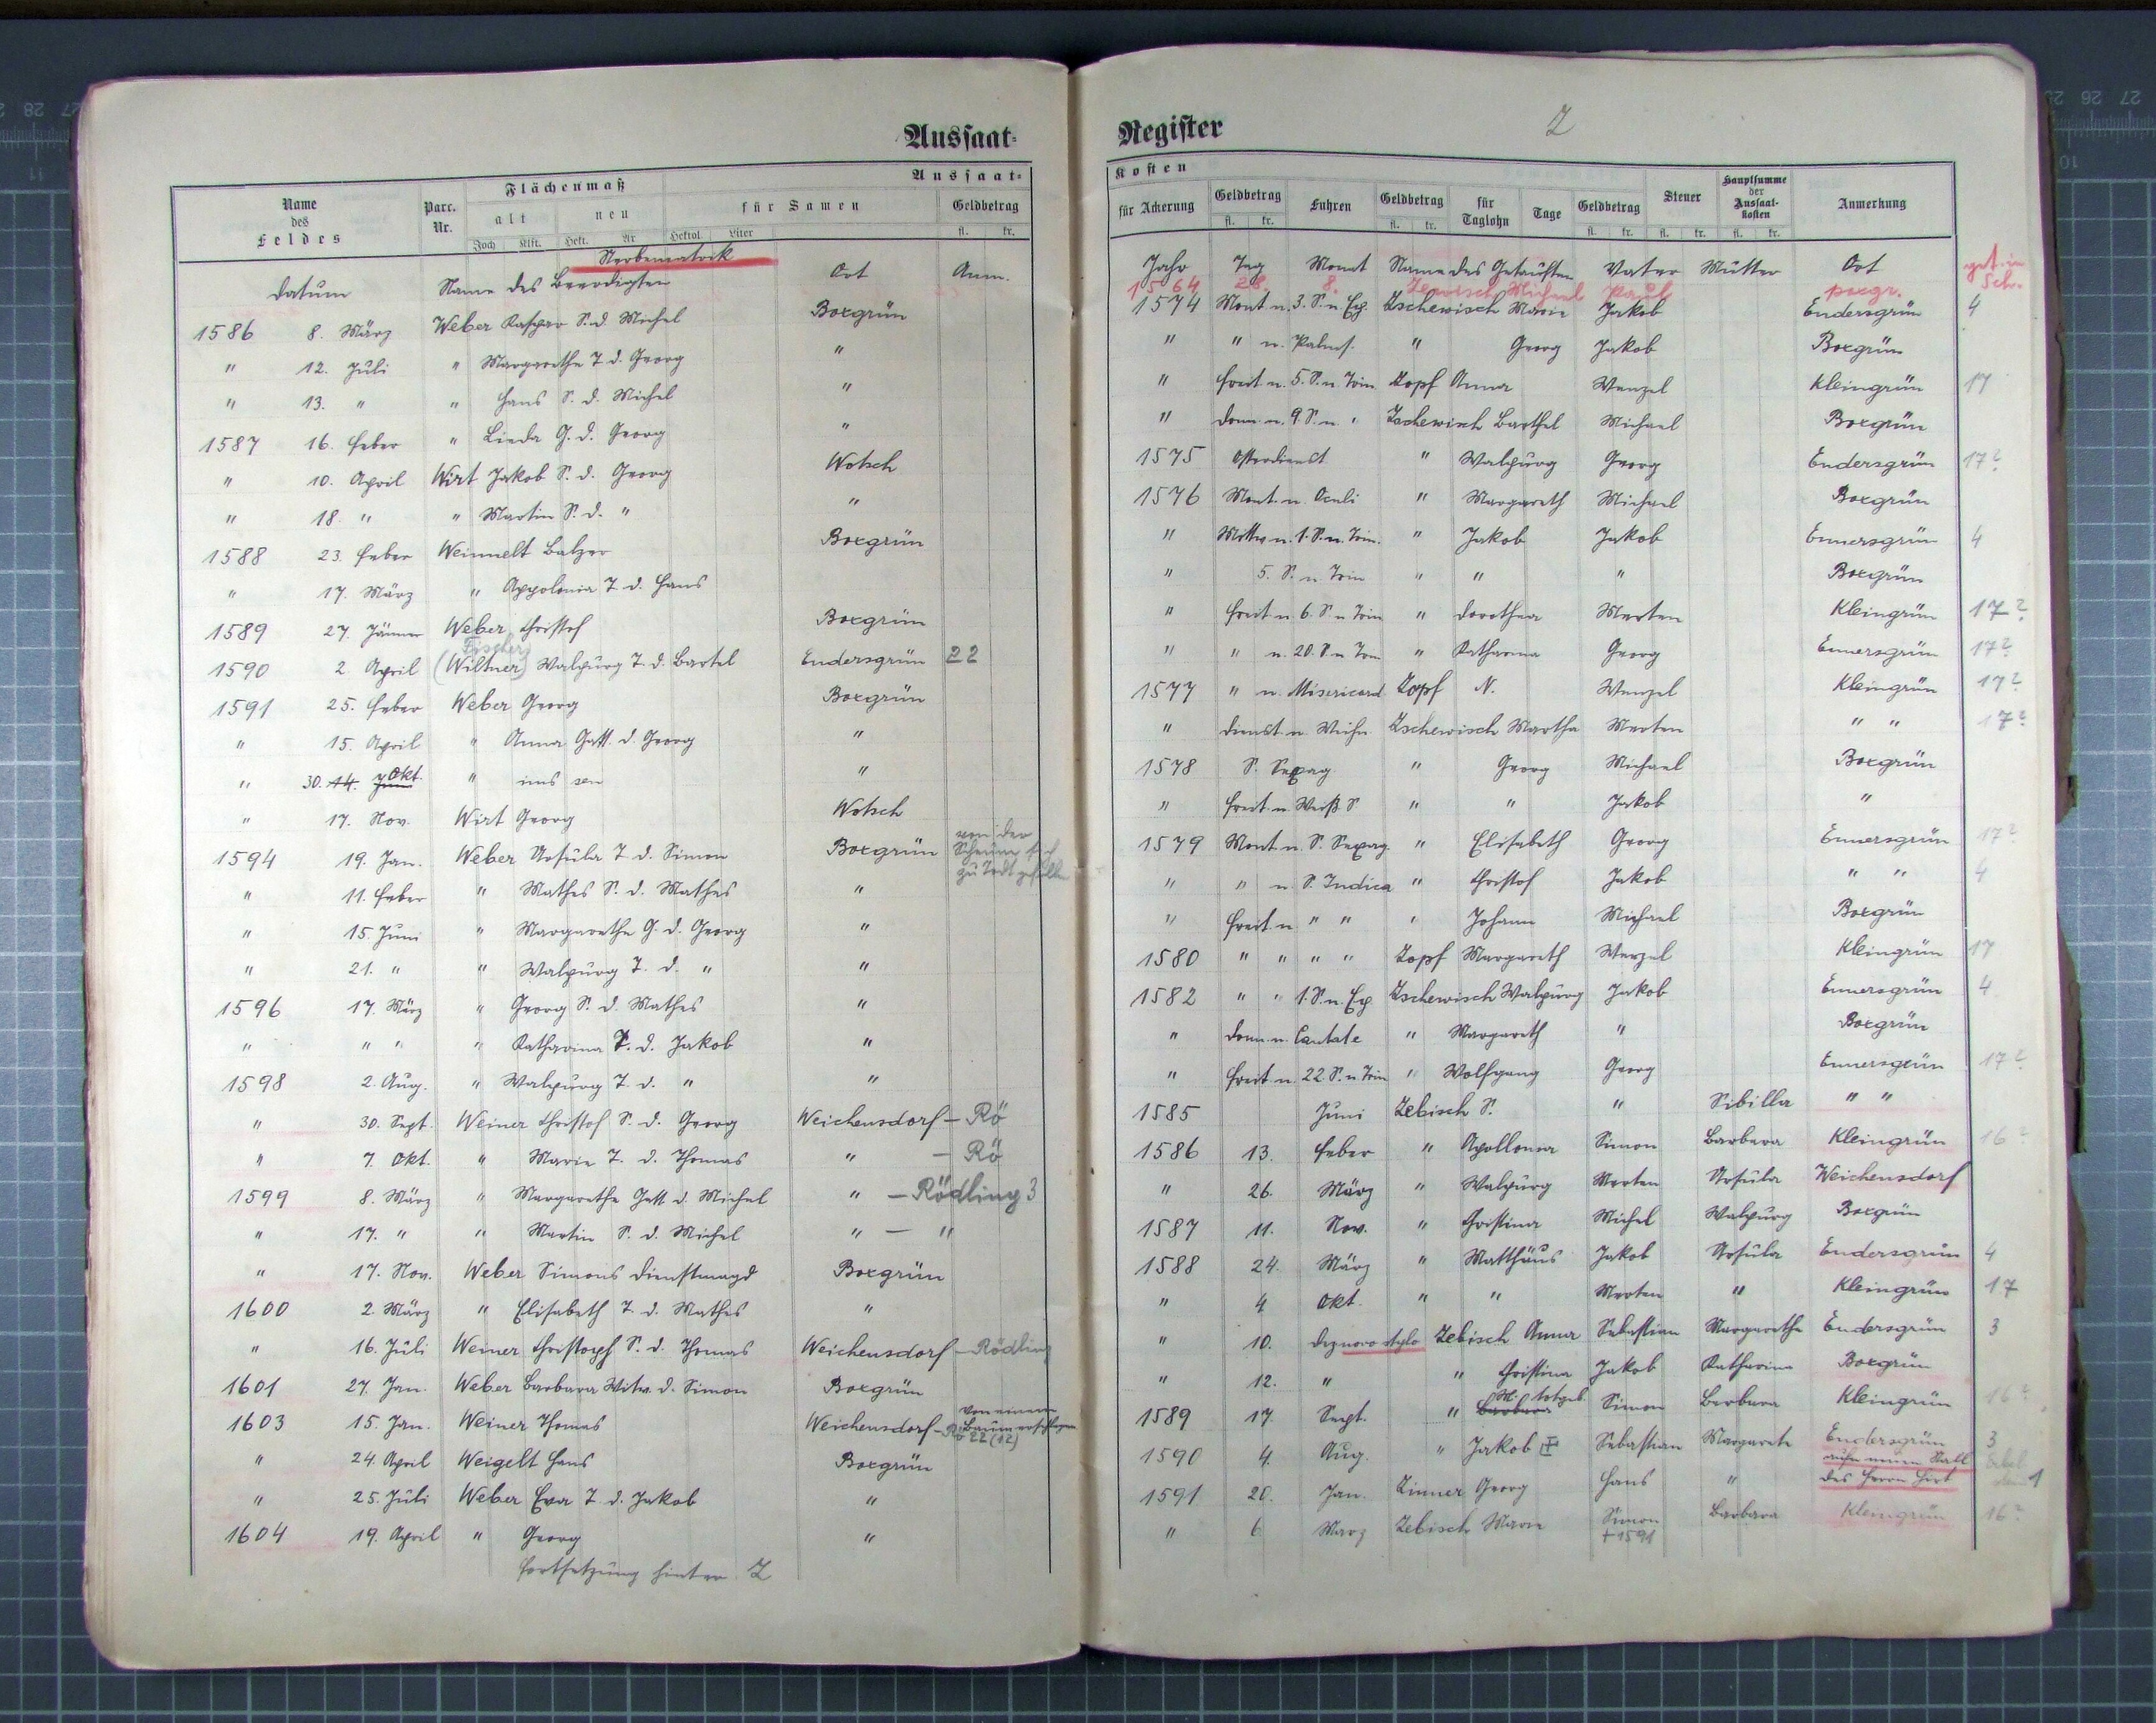 Aussaat-
Name des Feldes
Parc. Nr.
Flächenmaß
Aussaat-
alt
neu
für Samen
Geldbetrag
Joch Klft. Hekt. Ar Hektol. Liter fl. kr.
Sterbematrik
Datum Name des Beerdigten Ort Anm.
1586 8. März Weber Kaspar S. d. Michel Boxgrün
" 12. Juli " Margarethe T. d. Georg "
" 13. " " Hans S. d. Michel "
1587 16. Feber " Linda G. d. Georg "
" 10. April Wirt Jakob S. d. Georg Wotsch
" 18. " " Martin S. d. " "
1588 23. Feber Weinnelt Balzer Boxgrün
" 17. März " Appolonia T. d. Hans
1589 27. Jänner Weber Christof Boxgrün
Fischer
1590 2. April (Wiltner) Walpurg T. d. Bartel Endersgrün 22
1591 25. Feber Weber Georg Boxgrün
" 15. April " Anna Gatt. d. Georg "
" 30. 14. Juni Okt. " ims sen "
" 17. Nov. Wirt Georg Wotsch
1594 19. Jan. Weber Ursula T. d. Simon Boxgrün von der Scheune sich zu Todt gefallen
" 11. Feber " Mathes S. d. Mathes "
" 15. Juni " Margarethe G. d. Georg "
" 21. " " Walpurg T. d. " "
1596 17. März " Georg S. d. Mathes "
" " " " Katharina T. d. Jakob "
1598 2. Aug. " Walpurg T. d. " "
" 30. Sept. Weiner Christof S. d. Georg Weichensdorf - Rö
" 7. Okt. " Marie T. d. Thomas " - Rö
1599 8. März " Margarethe Gatt. d. Michel " - Rödling 3
" 17. " " Martin S. d. Michel " - "
" 17. Nov. Weber Simons Dienstmagd Boxgrün
1600 2. März " Elisabeth T. d. Mathes "
" 16. Juli Weiner Christoph S. d. Thomas Weichensdorf - Rödling
1601 27. Jan. Weber Barbara Witw. d. Simon Boxgrün
1603 15. Jan. Weiner Thomas Weichensdorf - Rö 22 (12) von einem Baum erschlagen
" 24. April Weigelt Hans Boxgrün
" 25. Juli Weber Eva T. d. Jakob "
1604 19. April " Georg "
Fortsetzung hinter Z
Register
Z
Kosten
für Ackerung Geldbetrag Fuhren Geldbetrag für Taglohn Tage Geldbetrag Steuer Hauptsumme der Aussaat-kosten Anmerkung
fl. kr. fl. kr. fl. kr. fl. kr. fl. kr.
Jahr Tag Monat Name des Getauften Vater Mutter Ort get. in Sch.
1564 28. 8. Zewisch Michael Paul poxgr.
1574 Mont. n. 3. S. n. Ep. Zschewisch Marie Jakob Endersgrün 4
" " n. Palms. " Georg Jakob Boxgrün
" Freit. n. 5. S. n. Trin. Zopf Anna Wenzel Kleingrün 17
" Donn. n. 9. S. n. " Zschewisch Barthel Michael Boxgrün
1575 Osterdienst " Walpurg Georg Endersgrün 17?
1576 Mont. n. Oculi " Margareth Michael Boxgrün
" Mittw. n. 1. S. n. Trin. " Jakob Jakob Ennersgrün 4
" 5. S. n. Trin " " " Boxgrün
" Freit n. 6. S. n Trin " Dorothea Merten Kleingrün 17?
" " n. 20. S. n Trin " Katharina Georg Ennersgrün 17?
1577 " n. Misericord. Zopf N. Wenzel Kleingrün 17?
" Dienst. n. Weihn. Zschewisch Martha Merten " " 17?
1578 S. Sexag. " Georg Michael Boxgrün
" Freit. n. Weiß. S. " " Jakob "
1579 Mont. n. S. Sexag. " Elisabeth Georg Ennersgrün 17?
" " n. S. Judica " Christof Jakob " " 4
" Freit. n " " " Johann Michael Boxgrün
1580 " " " " Zopf Margareth Wenzel Kleingrün 17
1582 " " 1. S. n. Ep. Zschewisch Walpurg Jakob Ennersgrün 4
" Donn. n. Cantate " Margareth " Boxgrün
" Freit n. 22. S. n Trin " Wolfgang Georg Ennersgrün 17?
1585 Juni Zebisch S. " Sibilla " "
1586 13. Feber " Apollonia Simon Barbara Kleingrün 16?
" 26. März " Walpurg Merten Ursula Weichensdorf
1587 11. Nov. " Christina Michel Walpurg Boxgrün
1588 24. März " Matthäus Jakob Ursula Endersgrün 4
" 4 Okt. " " Merten " Kleingrün 17
" 10. Dez novo stylo Zebisch Anna Sebastian Margarethe Endersgrün 3
" 12. " " Christina Jakob Katharina Boxgrün
1589 17. Sept. " Barbara totgeb. Simon Barbara Kleingrün 16?
1590 4. Aug. " Jakob Sebastian Margarete Endersgrün 3
1591 20. Jan. Zinner Georg Hans " aufm neuen Stall des Herrn Hirt 1
" 6 März Zebisch Marie Simon + 1591 Barbara Kleingrün 16?